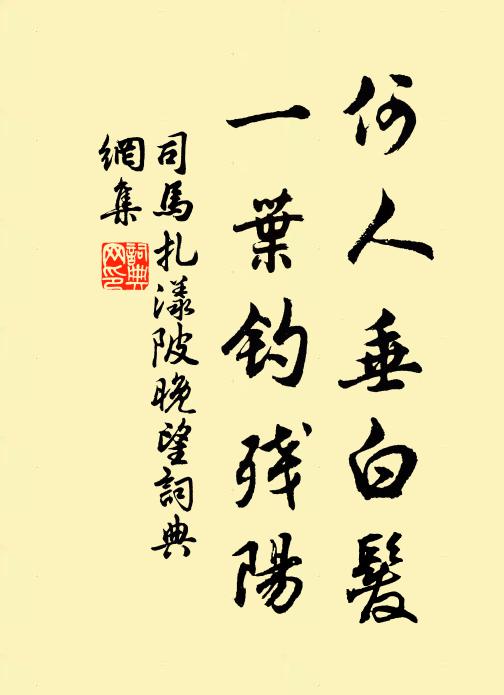 何人垂白髮
一葉釣殘陽
司馬扎漾陂晚望詞典
網集
詞典
网印